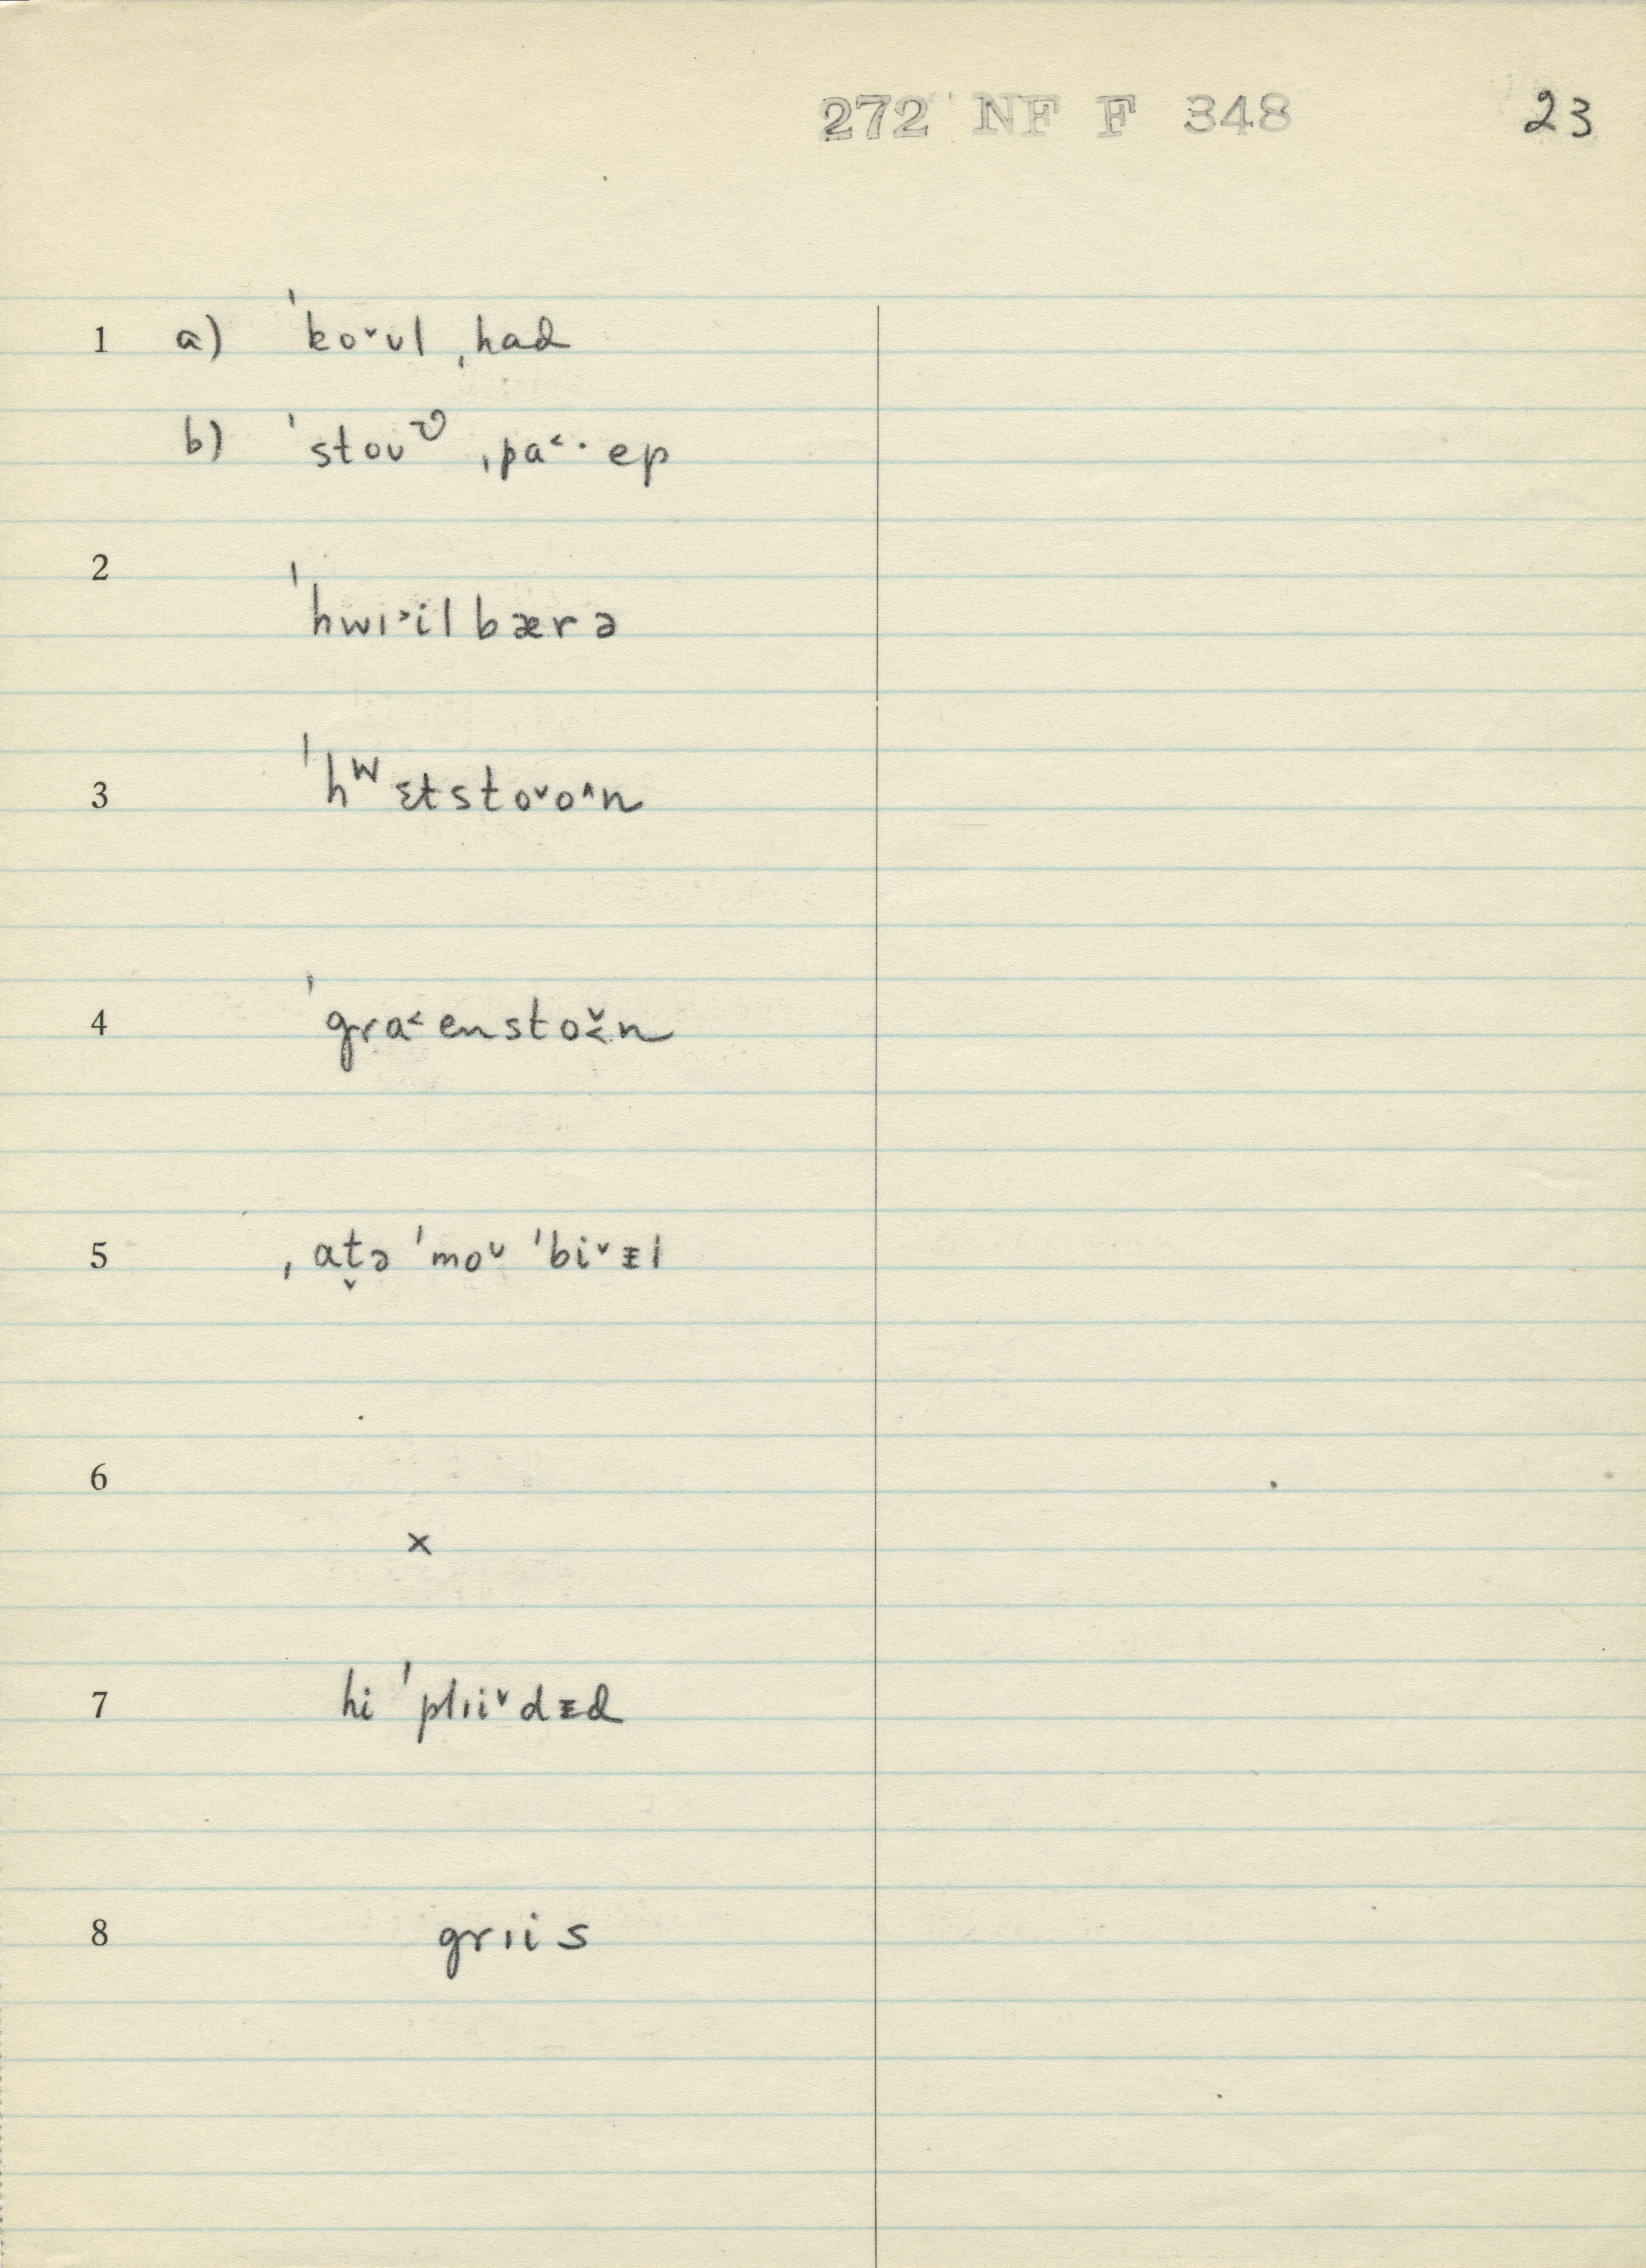 272 NF F 348 23
1 a) ˈkoˇʊl ˌhad
b) ˈstoʊʋ ˌpa˂· ep
2
ˈhwɪ˃il bærə
3 ˈhʷɛtstoˇo^n
4 ˈgra˂enstoˇ˂n
5 ˌat̬ə ˈmoᵘ ˈbiˇᵻl
6
x
7 hi ˈplɪiˇdᵻd
8 grɪis